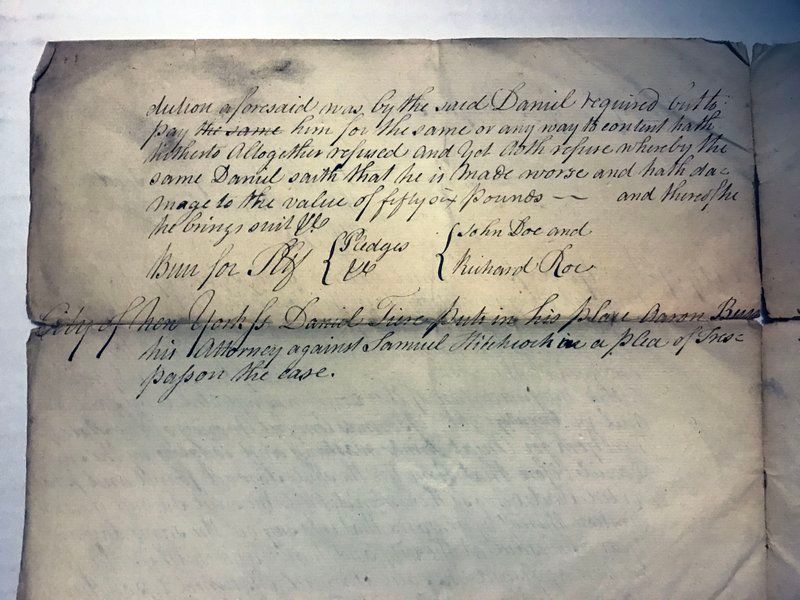 dition aforesaid was by the said Daniel required but to
pay the same him for the same or any way to content hath
hitherto Altogether refused and yet doth refuse whereby the
same Daniel saith that he is made worse and hath da=
mage to the value of fifty six Pounds -- and thereof he
he brings suit &c
Burr for Plff { Pledges &c { John Doe and Richard Roe
City of New York ss Daniel Tiere puts in his place Aaron Burr
his Attorney against Samuel Hitchcock in a plea of Tres=
pass on the case.